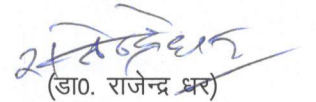 (डा0. राजेन्द्र धर)